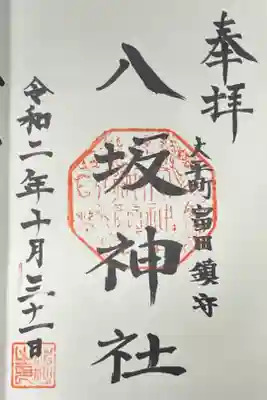 奉拝
大子町冨田鎮守
八坂神社
令和二年十月三十一日